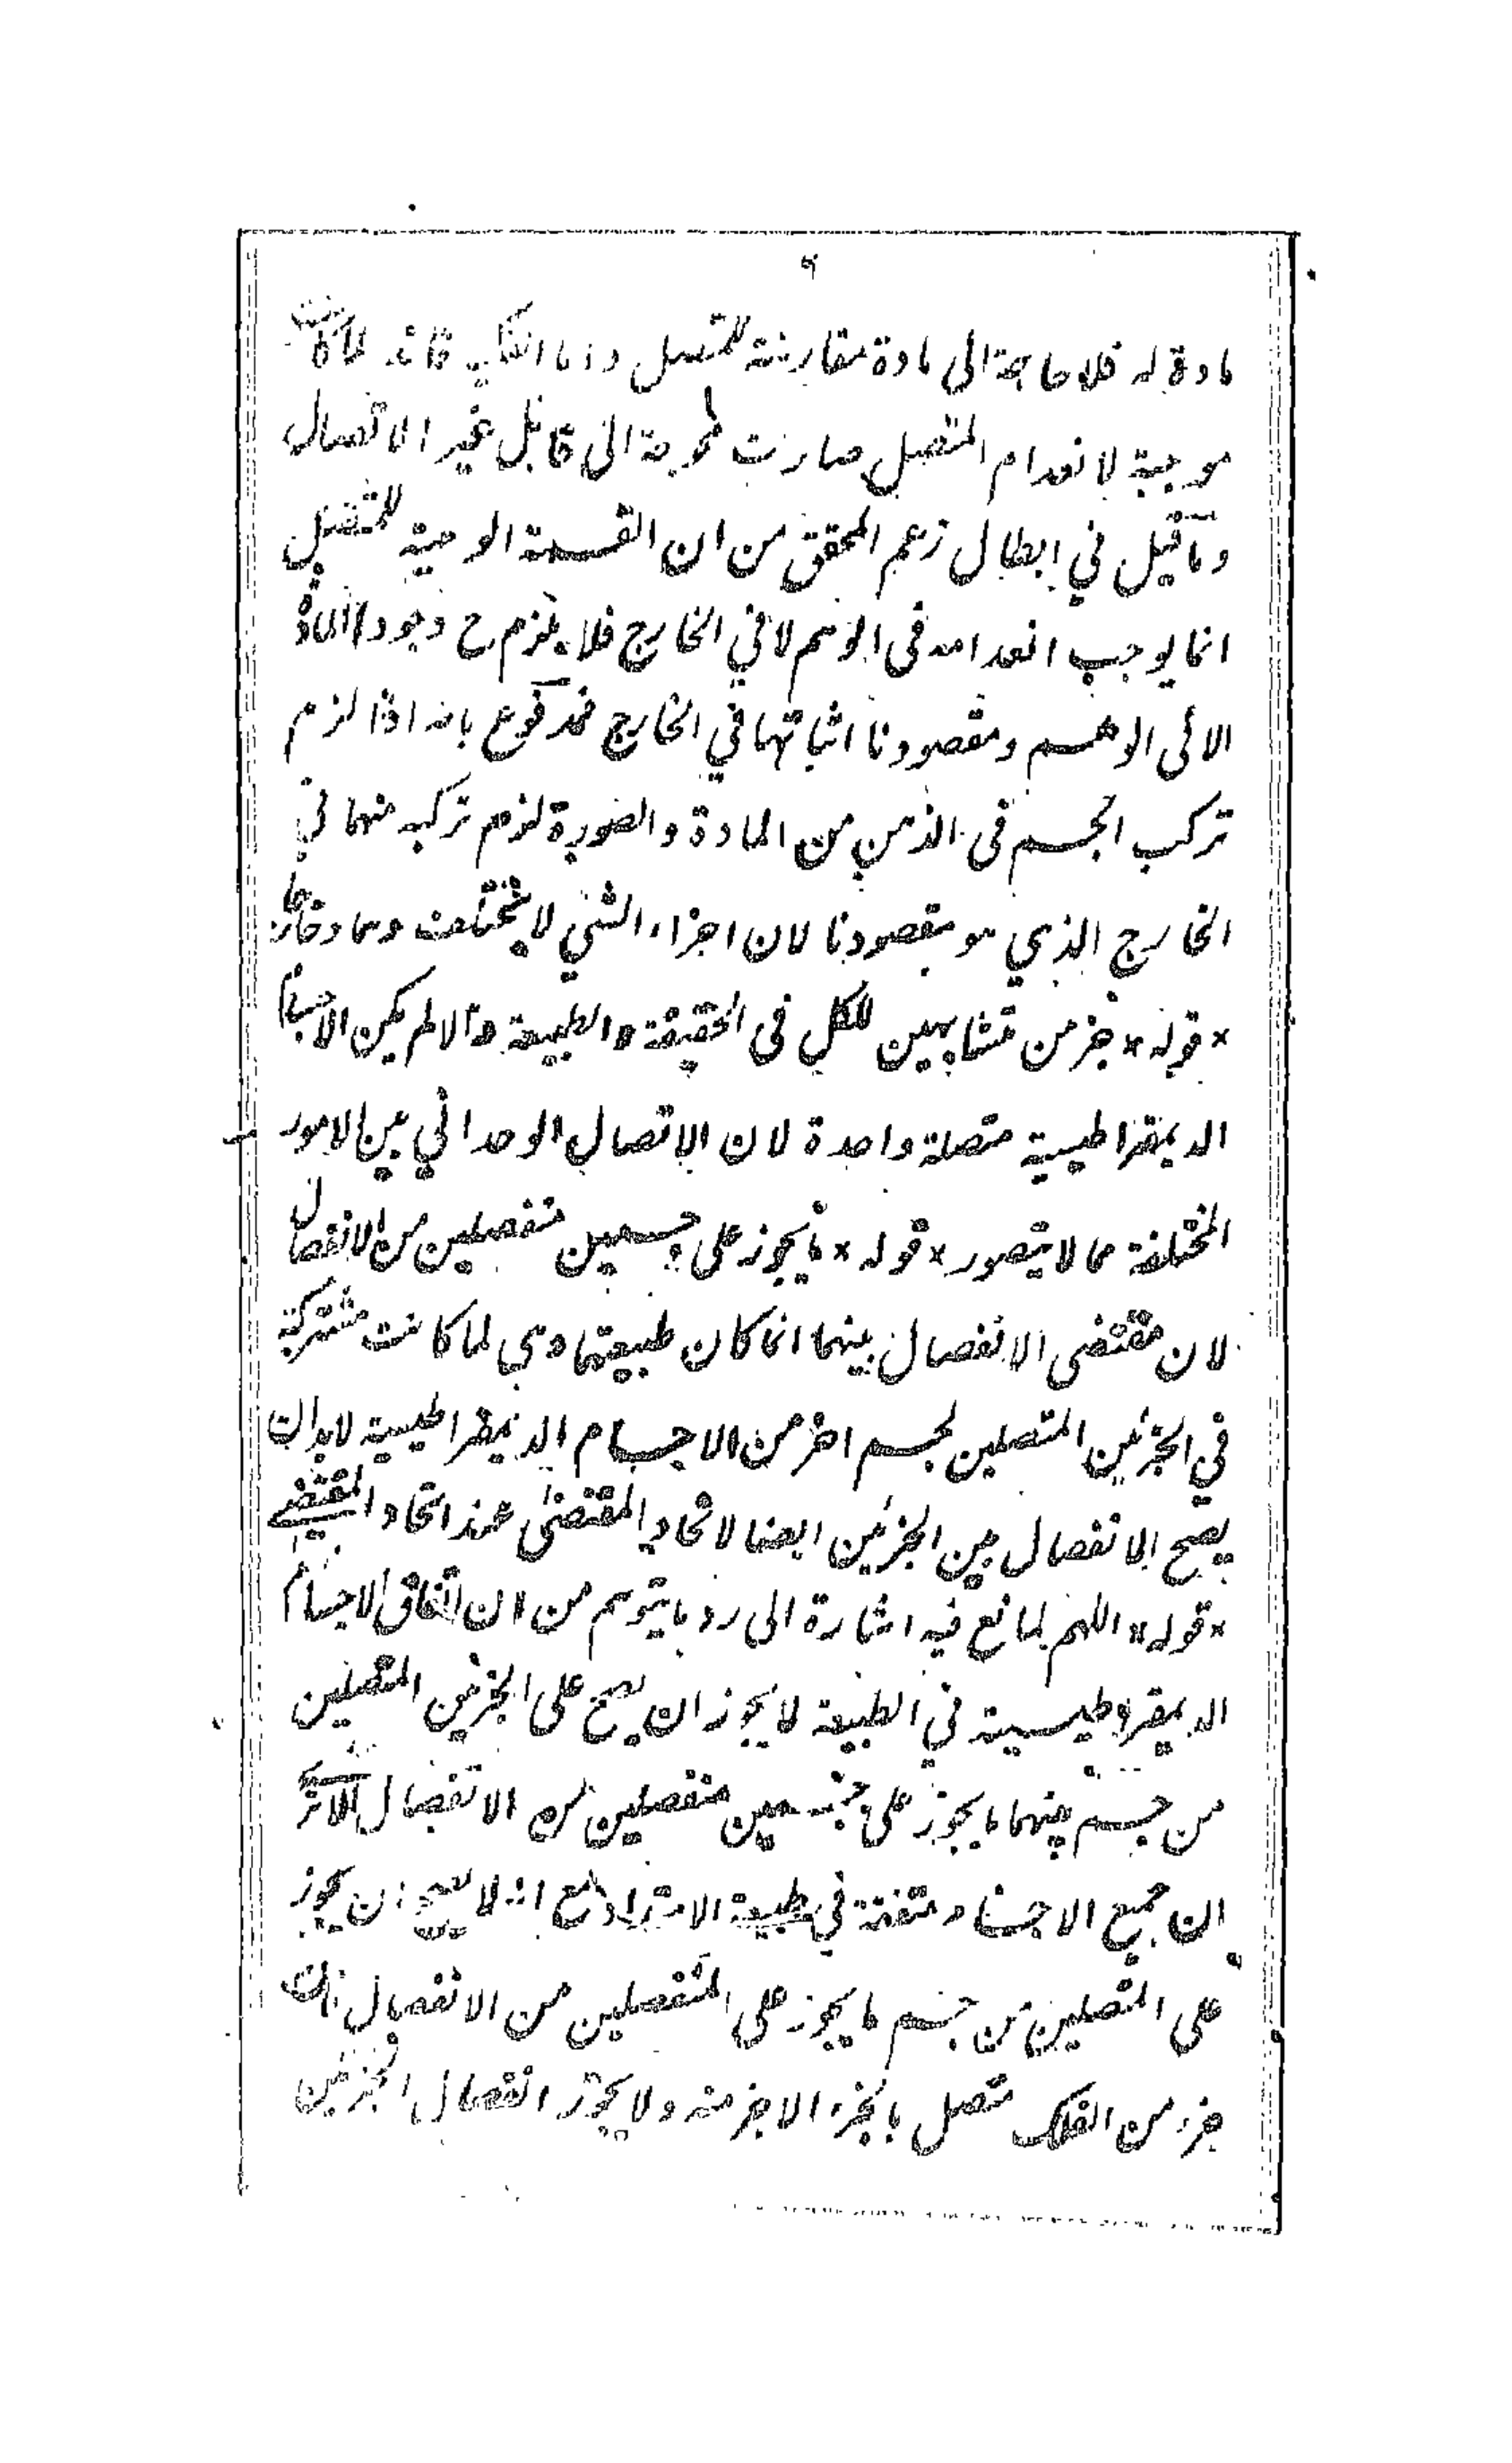 ٩
مادة له فلا حاجة الى مادة مقارنة للمتصل واما الفك فانه لما كانت
موجبة لانعدام المتصل صارت محوجة الى قابل غير الاتصال
وما قيل في ابطال زعم المحقق من ان القسمة الوهمية للمتصل
انما يوجب انعدامه فى الوهم لا في الخارج فلا يلزم ح وجود المادة
الا فى الوهم ومقصودنا اثباتها في الخارج فمدفوع بانه اذا لزم
تركب الجسم فى الذهن من المادة والصورة لزم تركبه منهما في
الخارج الذي هو مقصودنا لان اجزاء الشي لا يختلف وهما وخارجا
* قوله * جزءين متشابهين للكل فى الحقيقة والطبيعة والا لم يكن الاجسام
الديمقراطيسية متصلة واحدة لان الاتصال الوحداني بين الامور
المختلفة مما لا يتصور * قوله * ما يجوز على جسمين منفصلين من الانفصال
لان مقتضى الانفصال بينهما انما كان طبيعتهما وهى لما كانت مشتركة
في الجزئين المتصلين لجسم اخر من الاجسام الديمقراطيسية لا بد ان
يصح الانفصال بين الجزئين ايضا لاتحاد المقتضى عند اتحاد المقتضي
* قوله * اللهم لمانع فيه اشارة الى رد ما يتوهم من ان اتفاق الاجسام
الديمقراطيسية في الطبيعة لا يجوز ان يصح على الجزئين المتصلين
من جسم منهما ما يجوز على جسمين منفصلين من الانفصال الا ترى
ان جميع الاجسام متفقة في طبيعة الامتداد مع انه لا يصح ان يجوز
على المتصلين من جسم ما يجوز على المنفصلين من الانفصال فان
جزء من الفلك متصل بالجزء الاخر منه ولا يجوز انفصال الجزئين